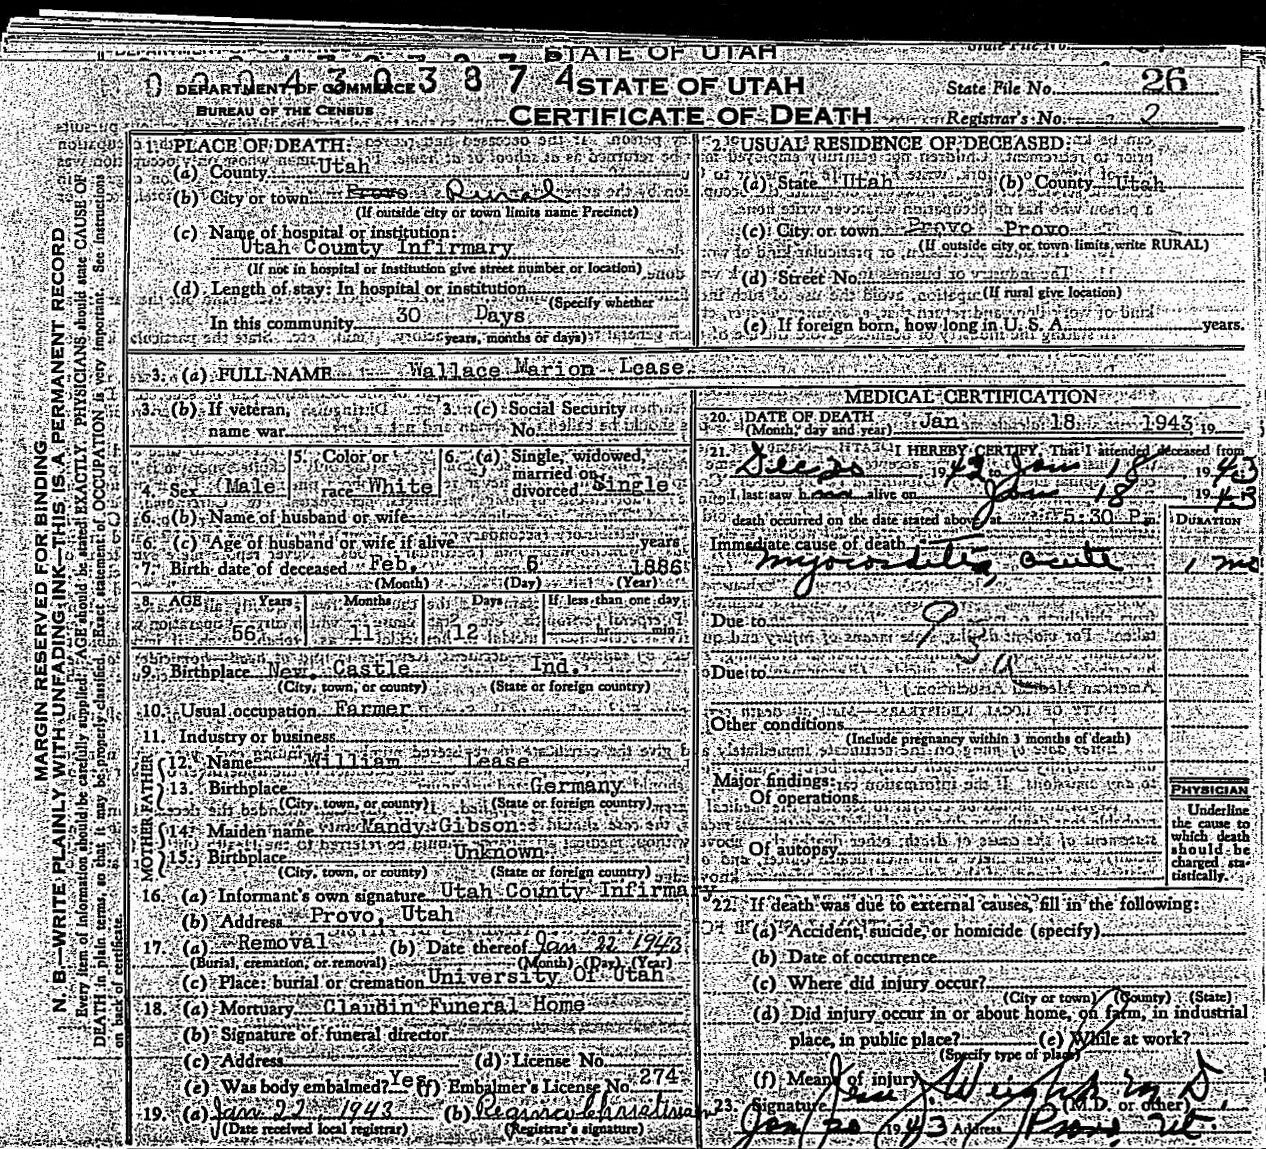 STATE OF UTAH
0004303874
DEPARTMENT OF COMMERCE
BUREAU OF THE CENSUS
STATE OF UTAH
CERTIFICATE OF DEATH
State File No. 26
Registrar's No. 2
MARGIN RESERVED FOR BINDING
N. B.—WRITE PLAINLY, WITH UNFADING INK—THIS IS A PERMANENT RECORD
Every item of information should be carefully supplied. AGE should be stated EXACTLY. PHYSICIANS should state CAUSE OF
DEATH in plain terms, so that it may be properly classified. Exact statement of OCCUPATION is very important. See instructions
on back of certificate.
1. PLACE OF DEATH:
(a) County Utah
(b) City or town Provo Rural
(If outside city or town limits name Precinct)
(c) Name of hospital or institution:
Utah County Infirmary
(If not in hospital or institution give street number or location)
(d) Length of stay: In hospital or institution
(Specify whether
In this community 30 Days
years, months or days)
2. USUAL RESIDENCE OF DECEASED:
(a) State Utah (b) County Utah
(c) City or town Provo Provo
(If outside city or town limits write RURAL)
(d) Street No.
(If rural give location)
(e) If foreign born, how long in U. S. A. years.
3. (a) FULL NAME Wallace Marion Lease.
3. (b) If veteran, 3. (c) Social Security
name war No.
4. Sex Male 5. Color or race White 6. (a) Single, widowed, married or divorced Single
6. (b) Name of husband or wife
6. (c) Age of husband or wife if alive years
7. Birth date of deceased Feb. 6 1886
(Month) (Day) (Year)
8. AGE Years Months Days If less than one day
56 11 12 hr. min.
9. Birthplace New Castle Ind.
(City, town, or county) (State or foreign country)
10. Usual occupation Farmer
11. Industry or business
FATHER
12. Name William Lease
13. Birthplace Germany
(City, town, or county) (State or foreign country)
MOTHER
14. Maiden name Mandy Gibson
15. Birthplace Unknown
(City, town, or county) (State or foreign country)
16. (a) Informant's own signature Utah County Infirmary
(b) Address Provo, Utah
17. (a) Removal (b) Date thereof Jan 22 1943
(Burial, cremation, or removal) (Month) (Day) (Year)
(c) Place: burial or cremation University Of Utah
18. (a) Mortuary Claudin Funeral Home
(b) Signature of funeral director
(c) Address (d) License No.
(e) Was body embalmed? Yes (f) Embalmer's License No. 274
19. (a) Jan 22, 1943 (b)
(Date received local registrar) (Registrar's signature)
MEDICAL CERTIFICATION
20. DATE OF DEATH Jan 18 1943, 19
(Month, day and year)
21. I HEREBY CERTIFY, That I attended deceased from
Dec 20 1942 to Jan 18 1943
I last saw h alive on Jan 18, 1943
death occurred on the date stated above, at 5:30 P m.
DURATION
Immediate cause of death
Myocarditis, acute 1 mo
Due to
Due to
Other conditions
(Include pregnancy within 3 months of death)
Major findings:
Of operations
Of autopsy
PHYSICIAN
Underline
the cause to
which death
should be
charged sta-
tistically.
22. If death was due to external causes, fill in the following:
(a) Accident, suicide, or homicide (specify)
(b) Date of occurrence
(c) Where did injury occur?
(City or town) (County) (State)
(d) Did injury occur in or about home, on farm, in industrial
place, in public place? (e) While at work?
(Specify type of place)
(f) Means of injury
23. Signature J. Weight M D.
(M.D. or other)
Jan 20 1943 Address Provo, Ut.